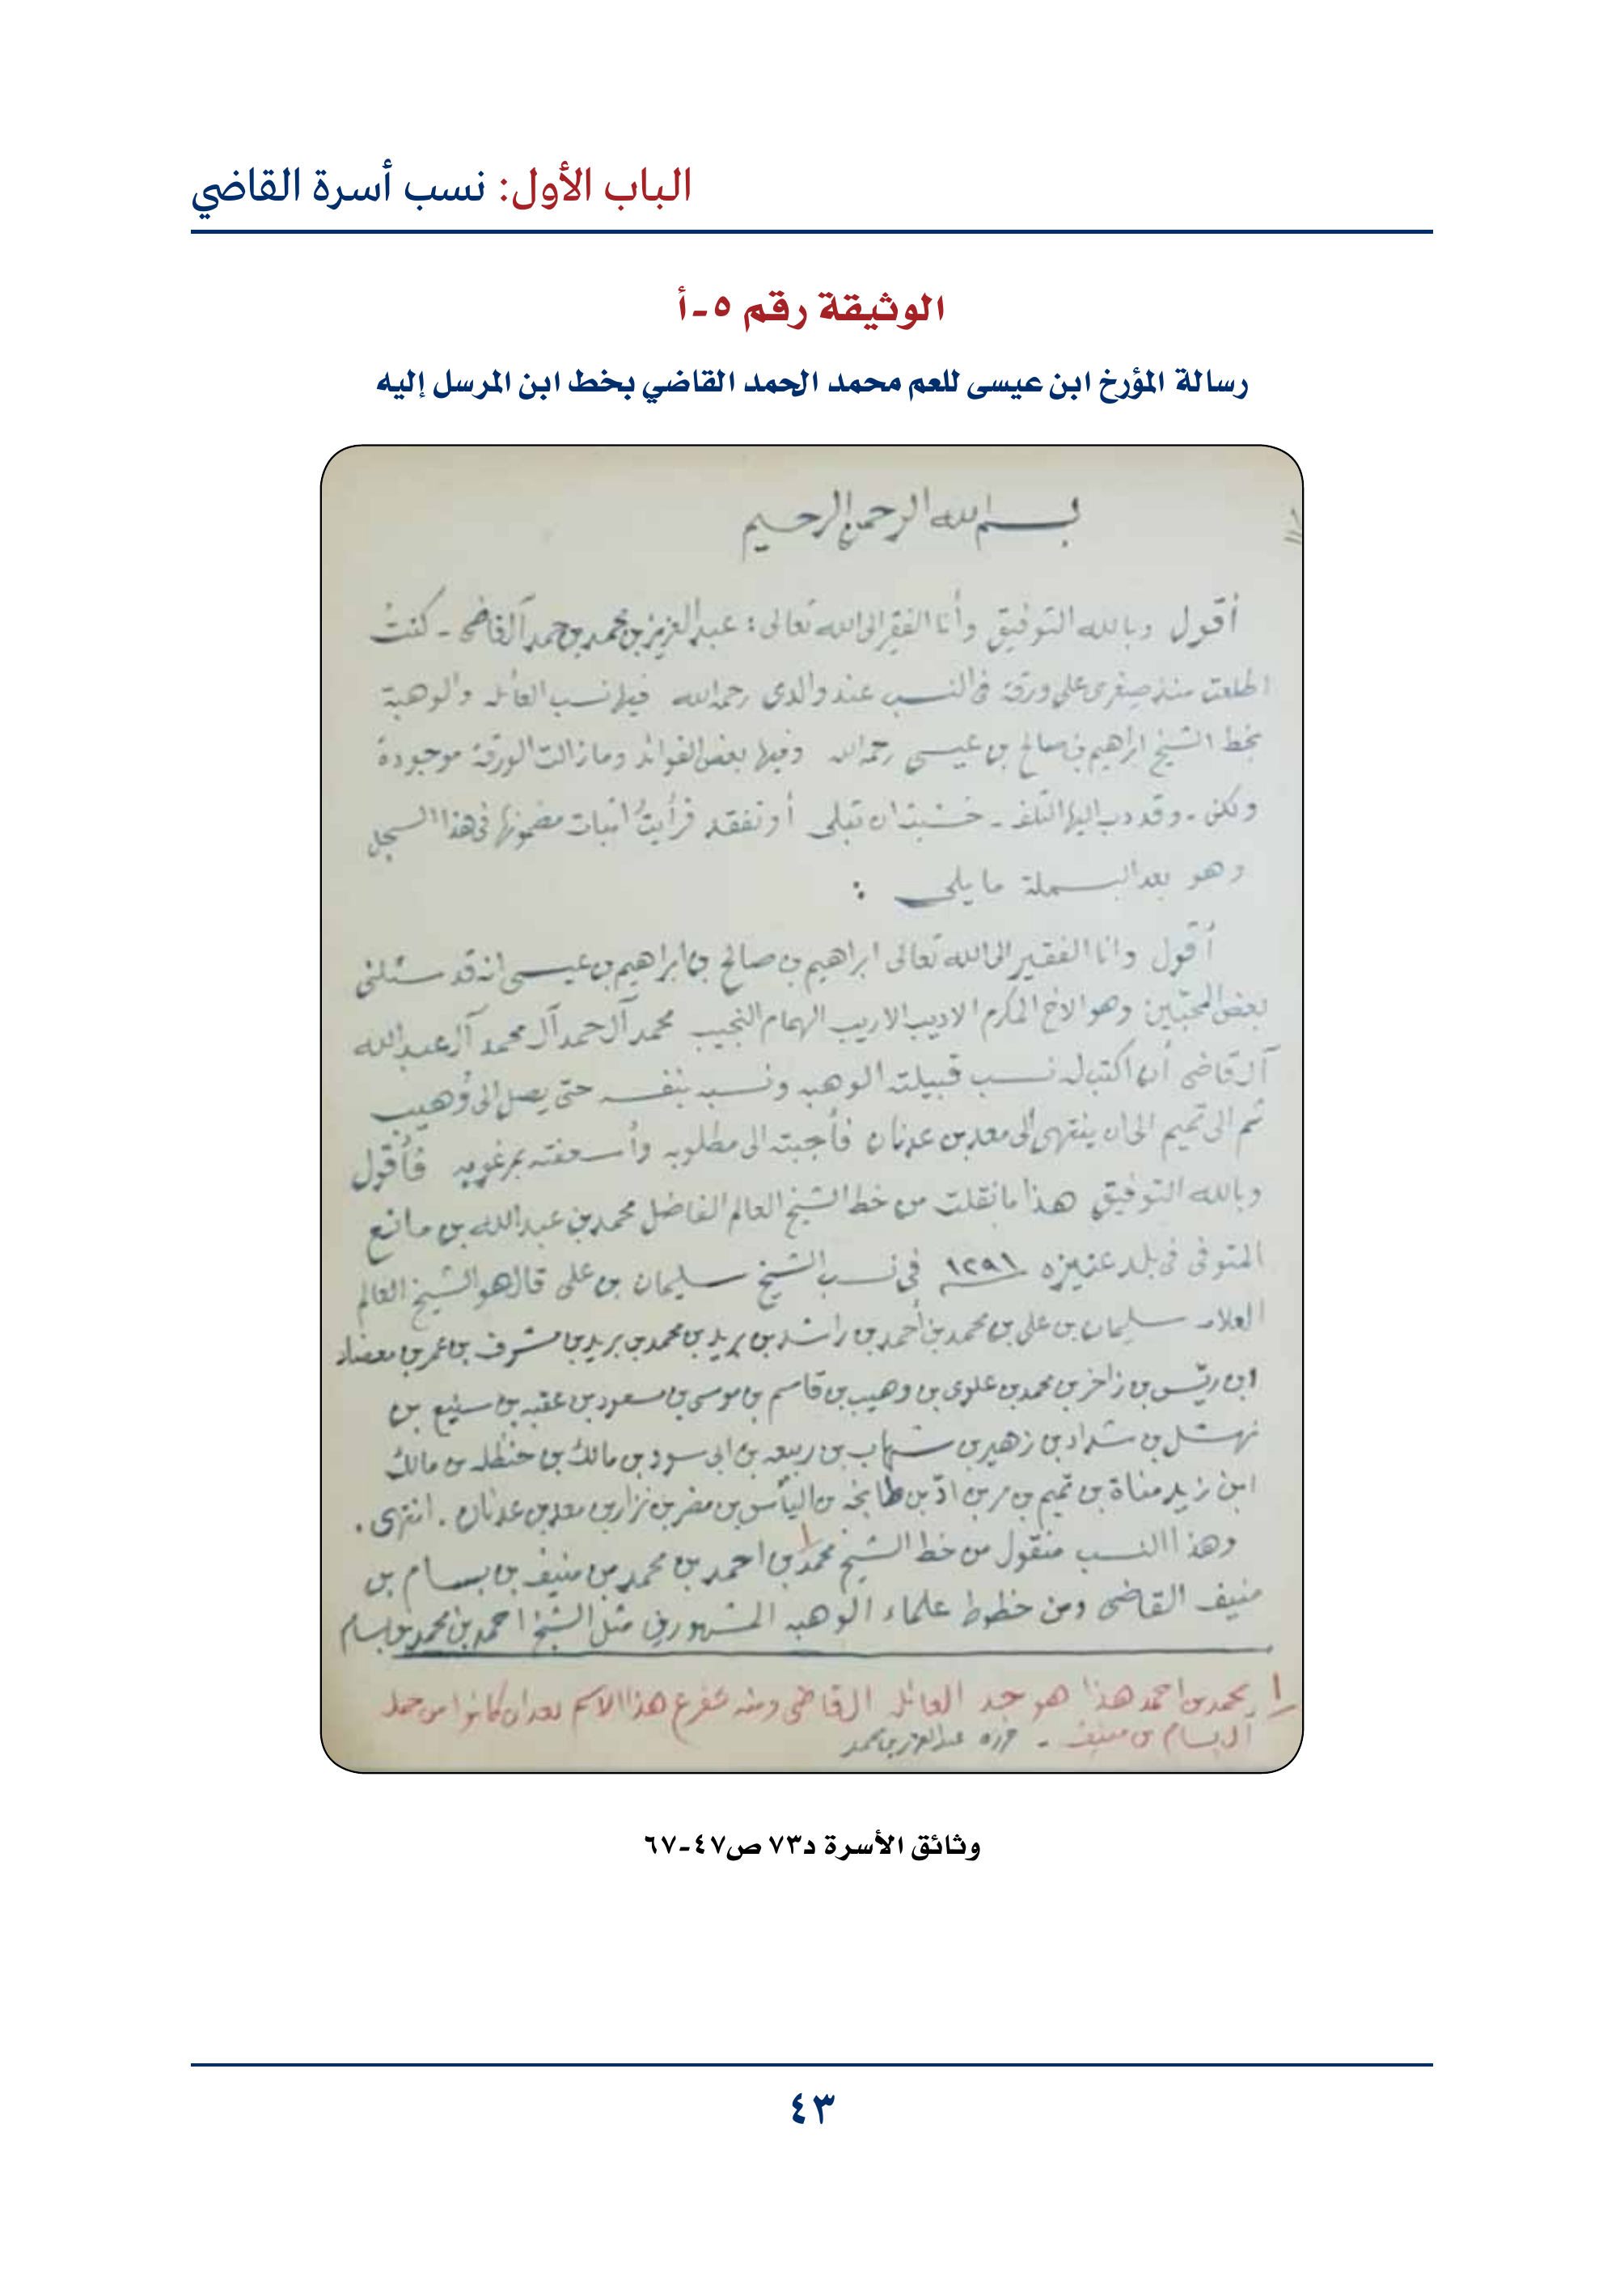 الباب الأول: نسب أسرة القاضي
الوثيقة رقم ٥-أ
رسالة المؤرخ ابن عيسى للعم محمد الحمد القاضي بخط ابن المرسل إليه
بسم الله الرحمن الرحيم
أقول وبالله التوفيق وأنا الفقير الى الله تعالى : عبدالعزيز بن محمد بن حمد آل قاضي - كنتُ
اطلعت منذ صغرى على ورقة فى النسب عند والدى رحمه الله فيها نسب العائله والوهبة
بخط الشيخ ابراهيم بن صالح بن عيسى رحمه الله وفيها بعض الفوائد ومازالت الورقة موجودة
ولكنى - وقد دب اليها التلف - خشيت ان تبلى أو تفقد فرأيتُ اثبات مضمونها فى هذا السجل
وهو بعد البسملة ما يلى :
أقول وانا الفقير الى الله تعالى ابراهيم بن صالح بن ابراهيم بن عيسى انه قد سئلنى
بعض المحبّين وهو الاخ المكرم الاديب الاريب الهمام النجيب محمد آل حمد آل محمد آل عبدالله
آل قاضى أن اكتب له نسب قبيلته الوهبه ونسبه بنفسه حتى يصل الى وُهيب
ثم الى تميم الى ان ينتهى الى معد بن عدنان فأجبته الى مطلوبه وأسعفته بمرغوبه فأقول
وبالله التوفيق هذا ما نقلت من خط الشيخ العالم الفاضل محمد بن عبدالله بن مانع
المتوفى فى بلد عنيزه ١٢٩١ فى نسب الشيخ سليمان بن على قال هو الشيخ العالم
العلامه سليمان بن على بن محمد بن أحمد بن راشد بن بريد بن محمد بن بريد بن مشرف بن عمر بن معضاد
ابن ريّس بن زاخر بن محمد بن علوى بن وهيب بن قاسم بن موسى بن مسعود بن عقبه بن سنيع بن
نهشل بن شداد بن زهير بن شهاب بن ربيعه بن ابى سود بن مالك بن حنظله بن مالك
ابن زيد مناة بن تميم بن مر بن ادّ بن طابخه بن اليأس بن مضر بن نزار بن معد بن عدنان . انتهى .
وهذا النسب منقول من خط الشيخ محمد ١ بن احمد بن محمد بن منيف بن بسام بن
منيف القاضى ومن خطوط علماء الوهبه المشهورين مثل الشيخ احمد بن محمد بن بسام
١ محمد بن احمد هذا هو جد العائله القاضى ومنه تفرع هذا الاسم بعد ان كانوا من حمله
آل بسام بن منيف - حرره عبدالعزيز بن محمد
وثائق الأسرة د٧٣ ص٤٧-٦٧
٤٣